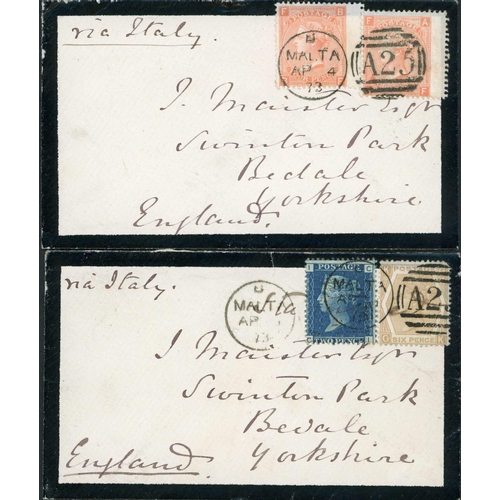 via Italy.
F POSTAGE B
F A
MALTA
AP 4
73
A25
F
J. Mainster Esqr
Swinton Park
Bedale
Yorkshire
England.
via Italy.
via
MALTA
AP
73
I POSTAGE G
MALTA
AP
TWO PENCE
A2
SIX PENCE
J Mainster Esqr
Swinton Park
Bedale
Yorkshire
England.